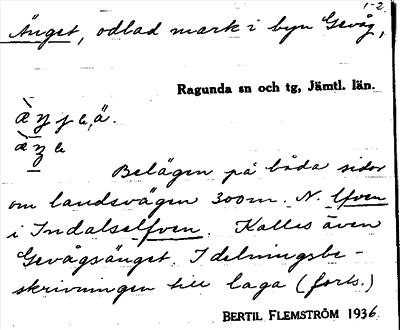 1-2.
Änget, odlad mark i byn Gevåg,
Ragunda sn och tg, Jämtl. län.
Belägen på båda sidor
om landsvägen 300m. N. Ifven
i Indalselfven. Kallas även
Gevågsänget. I delningsbe-
skrivningen till laga (forts.)
BERTIL FLEMSTRÖM 1936.